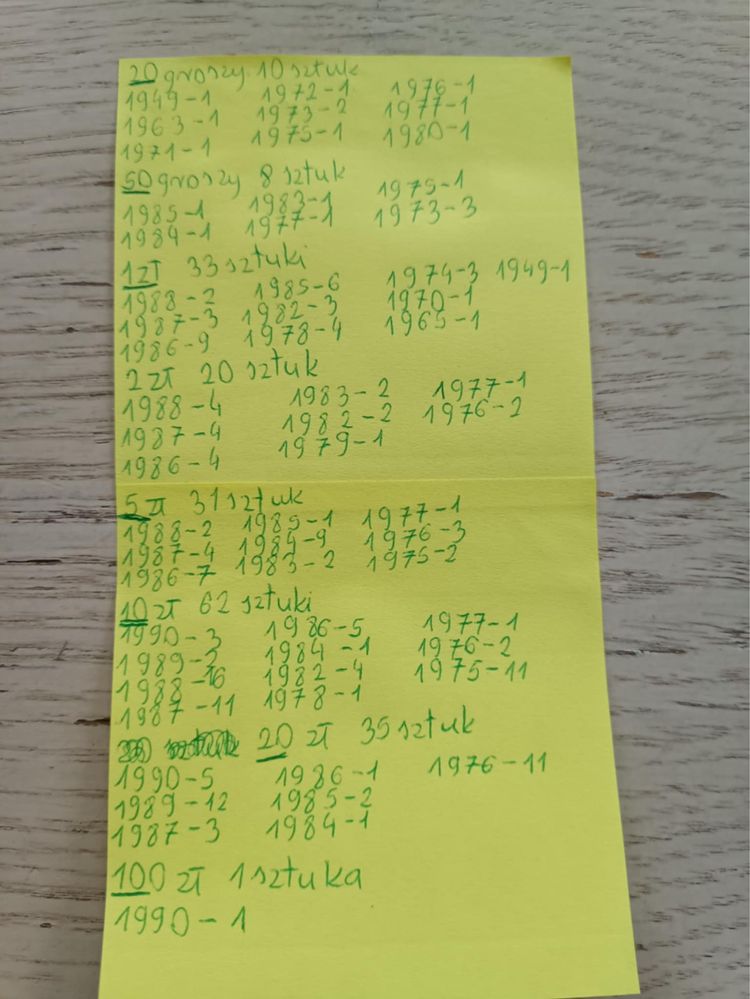 20 groszy 10 sztuk
1949-1 1972-1 1976-1
1963-1 1973-2 1977-1
1971-1 1975-1 1980-1
50 groszy 8 sztuk
1985-1 1983-1 1975-1
1984-1 1977-1 1973-3
1 zł 33 sztuki
1988-2 1985-6 1974-3 1949-1
1987-3 1982-3 1970-1
1986-9 1978-4 1965-1
2 zł 20 sztuk
1988-4 1983-2 1977-1
1987-4 1982-2 1976-2
1986-4 1979-1
5 zł 31 sztuk
1988-2 1985-1 1977-1
1987-4 1984-9 1976-3
1986-7 1983-2 1975-2
10 zł 62 sztuki
1990-3 1986-5 1977-1
1989- 1984-1 1976-2
1988-16 1982-4 1975-11
1987-11 1978-1
20 zł 35 sztuk
1990-5 1986-1 1976-11
1989-12 1985-2
1987-3 1984-1
100 zł 1 sztuka
1990-1